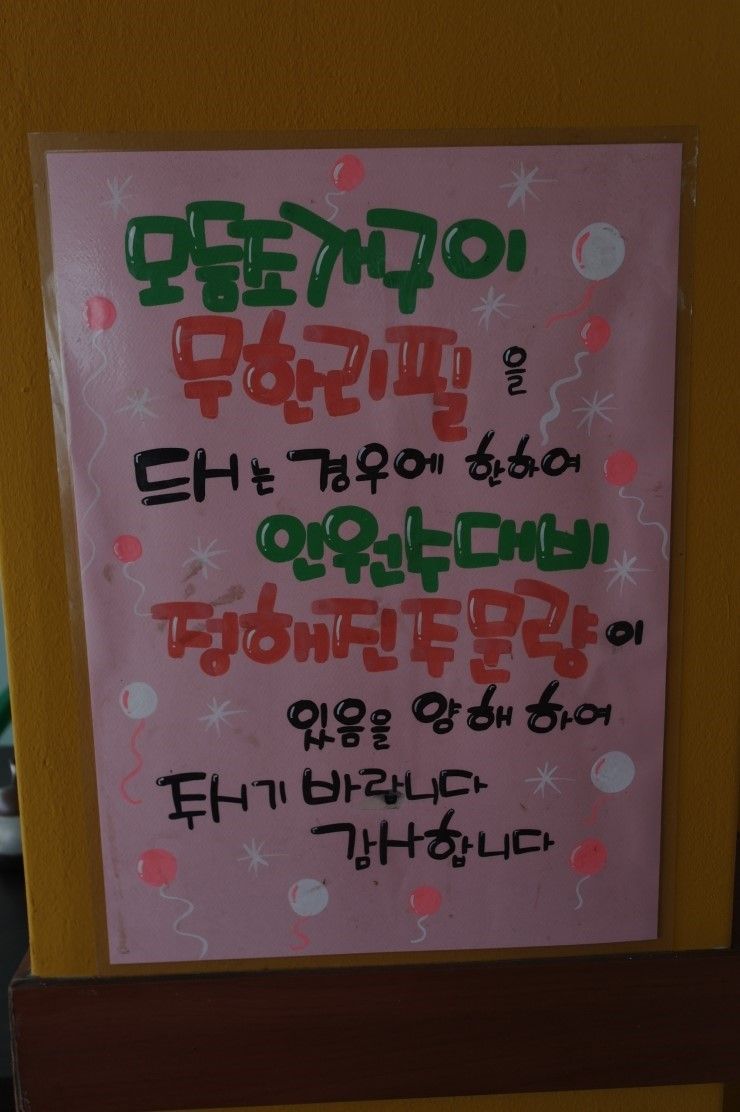 모듬조개구이
무한리필을
드시는 경우에 한하여
인원수대비
정해진주문량이
있음을 양해하여
주시기 바랍니다
감사합니다